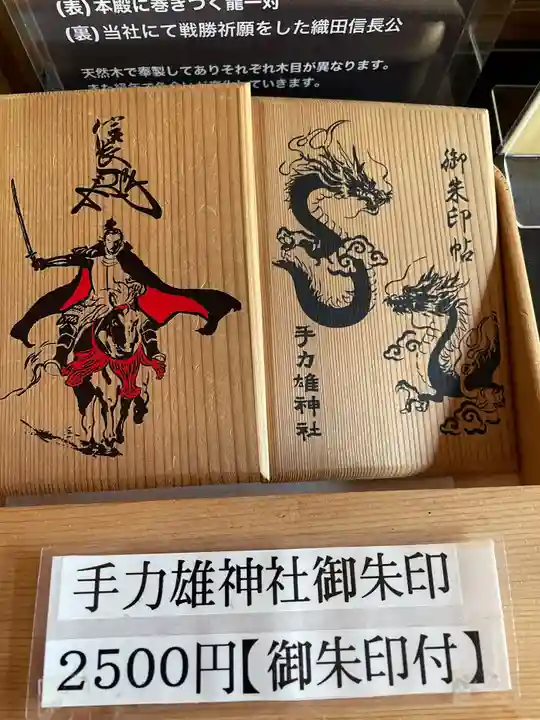 (表)本殿に巻きつく龍一対
(裏)当社にて戦勝祈願をした織田信長公
天然木で奉製してありそれぞれ木目が異なります。
信長
御朱印帖
手力雄神社
手力雄神社御朱印
2500円【御朱印付】